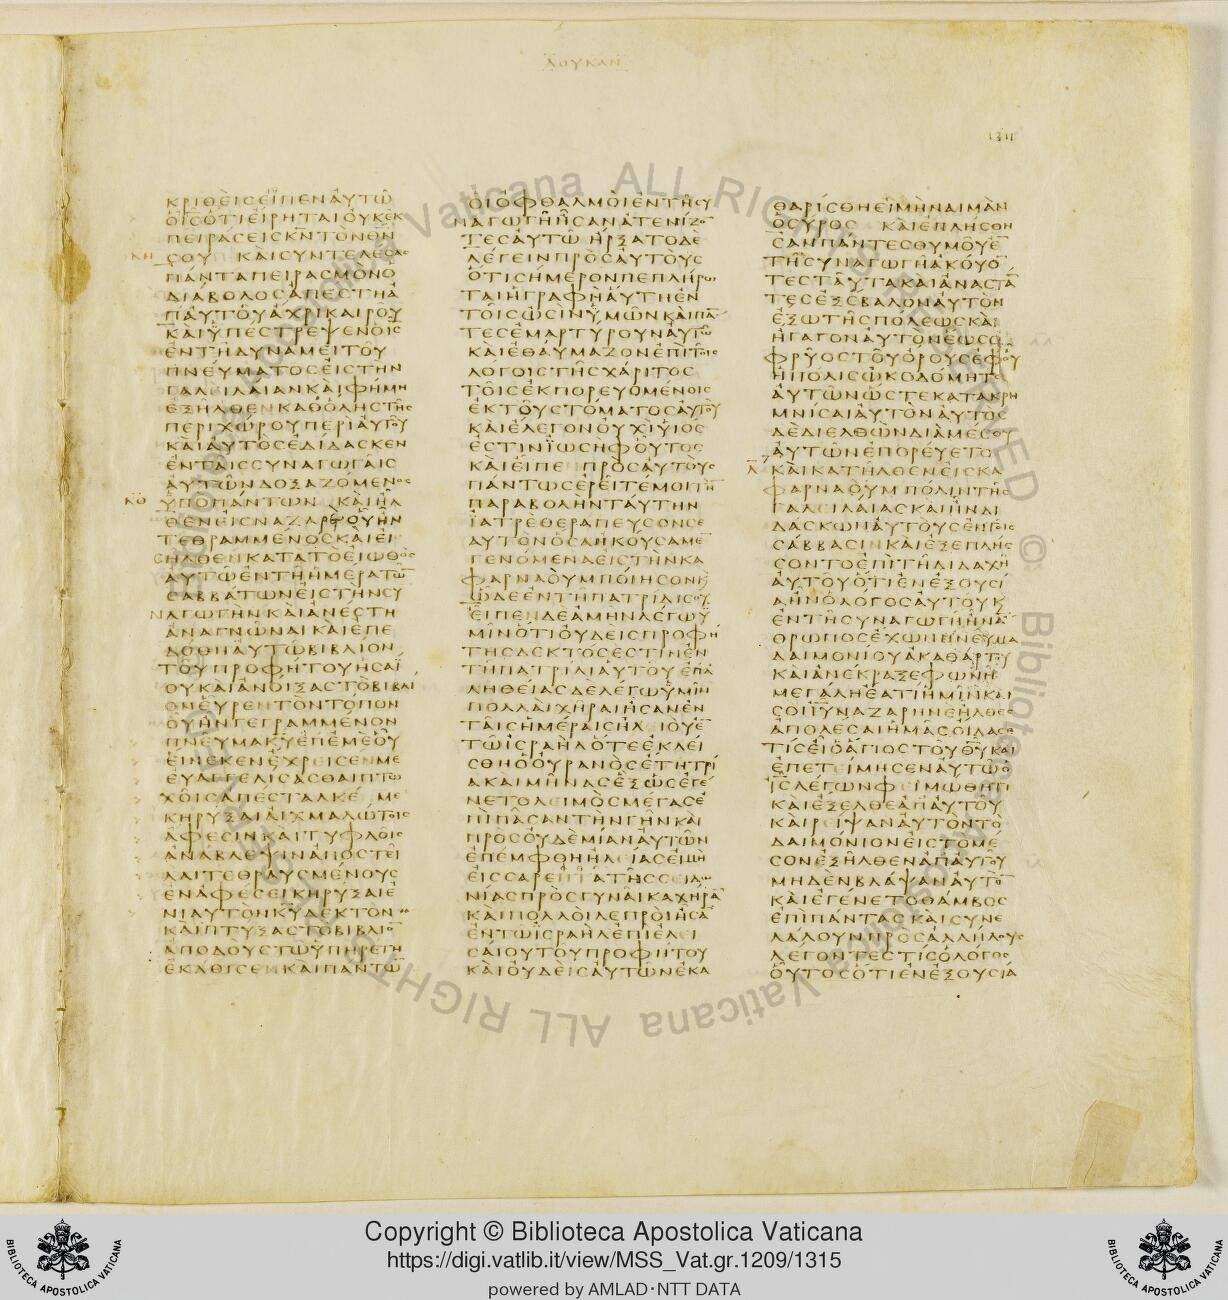 ΛΟΥΚΑΝ
1315
ΚΡΙΘΕΙΣΕΙΠΕΝΑΥΤΩ
ΟΙΣΟΤΙΕΙΡΗΤΑΙΟΥΚΕΚ
ΠΕΙΡΑΣΕΙΣΚΝΤΟΝΘΝ
ΚΗ ΣΟΥ ΚΑΙΣΥΝΤΕΛΕΣΑΣ
ΠΑΝΤΑΠΕΙΡΑΣΜΟΝΟ
ΔΙΑΒΟΛΟΣΑΠΕΣΤΗΑ
ΠΑΥΤΟΥΑΧΡΙΚΑΙΡΟΥ
ΚΑΙΥΠΕΣΤΡΕΨΕΝΟΙΣ
ΕΝΤΗΔΥΝΑΜΕΙΤΟΥ
ΠΝΕΥΜΑΤΟΣΕΙΣΤΗΝ
ΓΑΛΕΙΛΑΙΑΝΚΑΙΦΗΜΗ
ΕΞΗΛΘΕΝΚΑΘΟΛΗΣΤΗΣ
ΠΕΡΙΧΩΡΟΥΠΕΡΙΑΥΤΟΥ
ΚΑΙΑΥΤΟΣΕΔΙΔΑΣΚΕΝ
ΕΝΤΑΙΣΣΥΝΑΓΩΓΑΙΣ
ΑΥΤΩΝΔΟΞΑΖΟΜΕΝΟΣ
ΚΘ ΥΠΟΠΑΝΤΩΝ ΚΑΙΗΛ
ΘΕΝΕΙΣΝΑΖΑΡΕΘΟΥΗΝ
ΤΕΘΡΑΜΜΕΝΟΣΚΑΙΕΙ
ΣΗΛΘΕΝΚΑΤΑΤΟΕΙΩΘΟΣ
ΑΥΤΩΕΝΤΗΗΜΕΡΑΤΩ
ΣΑΒΒΑΤΩΝΕΙΣΤΗΝΣΥ
ΝΑΓΩΓΗΝΚΑΙΑΝΕΣΤΗ
ΑΝΑΓΝΩΝΑΙΚΑΙΕΠΕ
ΔΟΘΗΑΥΤΩΒΙΒΛΙΟΝ
ΤΟΥΠΡΟΦΗΤΟΥΗΣΑΪ
ΟΥΚΑΙΑΝΟΙΞΑΣΤΟΒΙΒΛΙ
ΟΝΕΥΡΕΝΤΟΝΤΟΠΟΝ
ΟΥΗΝΓΕΓΡΑΜΜΕΝΟΝ
ΠΝΕΥΜΑΚΥΕΠΕΜΕΟΥ
ΕΙΝΕΚΕΝΕΧΡΕΙΣΕΝΜΕ
ΕΥΑΓΓΕΛΙΣΑΣΘΑΙΠΤΩ
ΧΟΙΣΑΠΕΣΤΑΛΚΕ ΜΕ
ΚΗΡΥΞΑΙΑΙΧΜΑΛΩΤΟΙΣ
ΑΦΕΣΙΝΚΑΙΤΥΦΛΟΙΣ
ΑΝΑΒΛΕΨΙΝΑΠΟΣΤΕΙ
ΛΑΙΤΕΘΡΑΥΣΜΕΝΟΥΣ
ΕΝΑΦΕΣΕΙΚΗΡΥΞΑΙΕ
ΝΙΑΥΤΟΝΚΥΔΕΚΤΟΝ
ΚΑΙΠΤΥΞΑΣΤΟΒΙΒΛΙΟ
ΑΠΟΔΟΥΣΤΩΥΠΗΡΕΤΗ
ΕΚΑΘΙΣΕΝΚΑΙΠΑΝΤΩ
ΟΙΟΦΘΑΛΜΟΙΕΝΤΗΣΥ
ΝΑΓΩΓΗΗΣΑΝΑΤΕΝΙΖΟ
ΤΕΣΑΥΤΩ ΗΡΞΑΤΟΔΕ
ΛΕΓΕΙΝΠΡΟΣΑΥΤΟΥΣ
ΟΤΙΣΗΜΕΡΟΝΠΕΠΛΗΡΩ
ΤΑΙΗΓΡΑΦΗΑΥΤΗΕΝ
ΤΟΙΣΩΣΙΝΥΜΩΝΚΑΙΠΑ
ΤΕΣΕΜΑΡΤΥΡΟΥΝΑΥΤΩ
ΚΑΙΕΘΑΥΜΑΖΟΝΕΠΙΤΟΙΣ
ΛΟΓΟΙΣΤΗΣΧΑΡΙΤΟΣ
ΤΟΙΣΕΚΠΟΡΕΥΟΜΕΝΟΙΣ
ΕΚΤΟΥΣΤΟΜΑΤΟΣΑΥΤΟΥ
ΚΑΙΕΛΕΓΟΝΟΥΧΙΥΙΟΣ
ΕΣΤΙΝΪΩΣΗΦΟΥΤΟΣ
ΚΑΙΕΙΠΕ ΠΡΟΣΑΥΤΟΥΣ
ΠΑΝΤΩΣΕΡΕΙΤΕΜΟΙΤΗ
ΠΑΡΑΒΟΛΗΝΤΑΥΤΗΝ
ΪΑΤΡΕΘΕΡΑΠΕΥΣΟΝΣΕ
ΑΥΤΟΝΟΣΑΗΚΟΥΣΑΜΕ
ΓΕΝΟΜΕΝΑΕΙΣΤΗΝΚΑ
ΦΑΡΝΑΟΥΜΠΟΙΗΣΟΝΚ
ΩΔΕΕΝΤΗΠΑΤΡΙΔΙΣΟΥ
ΕΙΠΕΝΔΕΑΜΗΝΛΕΓΩΥ
ΜΙΝΟΤΙΟΥΔΕΙΣΠΡΟΦΗ
ΤΗΣΔΕΚΤΟΣΕΣΤΙΝΕΝ
ΤΗΠΑΤΡΙΔΙΑΥΤΟΥ ΕΠΑ
ΛΗΘΕΙΑΣΔΕΛΕΓΩΥΜΙΝ
ΠΟΛΛΑΙΧΗΡΑΙΗΣΑΝΕΝ
ΤΑΙΣΗΜΕΡΑΙΣΗΛΕΙΟΥΕ
ΤΩΙΣΡΑΗΛΟΤΕΕΚΛΕΙ
ΣΘΗΟΟΥΡΑΝΟΣΕΤΗΤΡΙ
ΑΚΑΙΜΗΝΑΣΕΞΩΣΕΓΕ
ΝΕΤΟΛΕΙΜΟΣΜΕΓΑΣΕ
ΠΙΠΑΣΑΝΤΗΝΓΗΝΚΑΙ
ΠΡΟΣΟΥΔΕΜΙΑΝΑΥΤΩΝ
ΕΠΕΜΦΘΗΗΛΕΙΑΣΕΙΜΗ
ΕΙΣΣΑΡΕΠΤΑΤΗΣΣΕΙΔΩ
ΝΙΑΣΠΡΟΣΓΥΝΑΙΚΑΧΗΡΑ
ΚΑΙΠΟΛΛΟΙΛΕΠΡΟΙΗΣΑ
ΕΝΤΩΙΣΡΑΗΛΕΠΙΕΛΕΙ
ΣΑΙΟΥΤΟΥΠΡΟΦΗΤΟΥ
ΚΑΙΟΥΔΕΙΣΑΥΤΩΝΕΚΑ
ΘΑΡΙΣΘΗΕΙΜΗΝΑΙΜΑΝ
ΟΣΥΡΟΣ ΚΑΙΕΠΛΗΣΘΗ
ΣΑΝΠΑΝΤΕΣΘΥΜΟΥΕ
ΤΗΣΥΝΑΓΩΓΗΑΚΟΥΟ
ΤΕΣΤΑΥΤΑΚΑΙΑΝΑΣΤΑ
ΤΕΣΕΞΕΒΑΛΟΝΑΥΤΟΝ
ΕΞΩΤΗΣΠΟΛΕΩΣΚΑΙ
ΗΓΑΓΟΝΑΥΤΟΝΕΩΣΟ
ΦΡΥΟΣΤΟΥΟΡΟΥΣΕΦΟΥ
ΗΠΟΛΙΣΩΚΟΔΟΜΗΤΟ
ΑΥΤΩΝΩΣΤΕΚΑΤΑΚΡΗ
ΜΝΙΣΑΙΑΥΤΟΝΑΥΤΟΣ
ΔΕΔΙΕΛΘΩΝΔΙΑΜΕΣΟΥ
ΑΥΤΩΝΕΠΟΡΕΥΕΤΟ
Λ ΚΑΙΚΑΤΗΛΘΕΝΕΙΣΚΑ
ΦΑΡΝΑΟΥΜ ΠΟΛΙΝΤΗΣ
ΓΑΛΕΙΛΑΙΑΣΚΑΙΗΝΔΙ
ΔΑΣΚΩΝΑΥΤΟΥΣΕΝΤΟΙΣ
ΣΑΒΒΑΣΙΝΚΑΙΕΞΕΠΛΗΣ
ΣΟΝΤΟΕΠΙΤΗΔΙΔΑΧΗ
ΑΥΤΟΥΟΤΙΕΝΕΞΟΥΣΙ
ΑΗΝΟΛΟΓΟΣΑΥΤΟΥΚ
ΕΝΤΗΣΥΝΑΓΩΓΗΗΝΑ
ΘΡΩΠΟΣΕΧΩΝΠΝΕΥΜΑ
ΔΑΙΜΟΝΙΟΥΑΚΑΘΑΡΤΟΥ
ΚΑΙΑΝΕΚΡΑΞΕΦΩΝΗ
ΜΕΓΑΛΗΕΑΤΙΗΜΙΝΚΑΙ
ΣΟΙΙΥΝΑΖΑΡΗΝΕΗΛΘΕΣ
ΑΠΟΛΕΣΑΙΗΜΑΣΟΙΔΑΣΕ
ΤΙΣΕΙΟΑΓΙΟΣΤΟΥΘΥΚΑΙ
ΕΠΕΤΕΙΜΗΣΕΝΑΥΤΩΟ
ΙΣΛΕΓΩΝΦΕΙΜΩΘΗΤΙ
ΚΑΙΕΞΕΛΘΕΑΠΑΥΤΟΥ
ΚΑΙΡΕΙΨΑΝΑΥΤΟΝΤΟ
ΔΑΙΜΟΝΙΟΝΕΙΣΤΟΜΕ
ΣΟΝΕΞΗΛΘΕΝΑΠΑΥΤΟΥ
ΜΗΔΕΝΒΛΑΨΑΝΑΥΤΟ
ΚΑΙΕΓΕΝΕΤΟΘΑΜΒΟΣ
ΕΠΙΠΑΝΤΑΣΚΑΙΣΥΝΕ
ΛΑΛΟΥΝΠΡΟΣΑΛΛΗΛΟΥΣ
ΛΕΓΟΝΤΕΣΤΙΣΟΛΟΓΟΣ
ΟΥΤΟΣΟΤΙΕΝΕΞΟΥΣΙΑ
Copyright © Biblioteca Apostolica Vaticana
https://digi.vatlib.it/view/MSS_Vat.gr.1209/1315
powered by AMLAD·NTT DATA
BIBLIOTECA APOSTOLICA VATICANA
BIBLIOTECA APOSTOLICA VATICANA